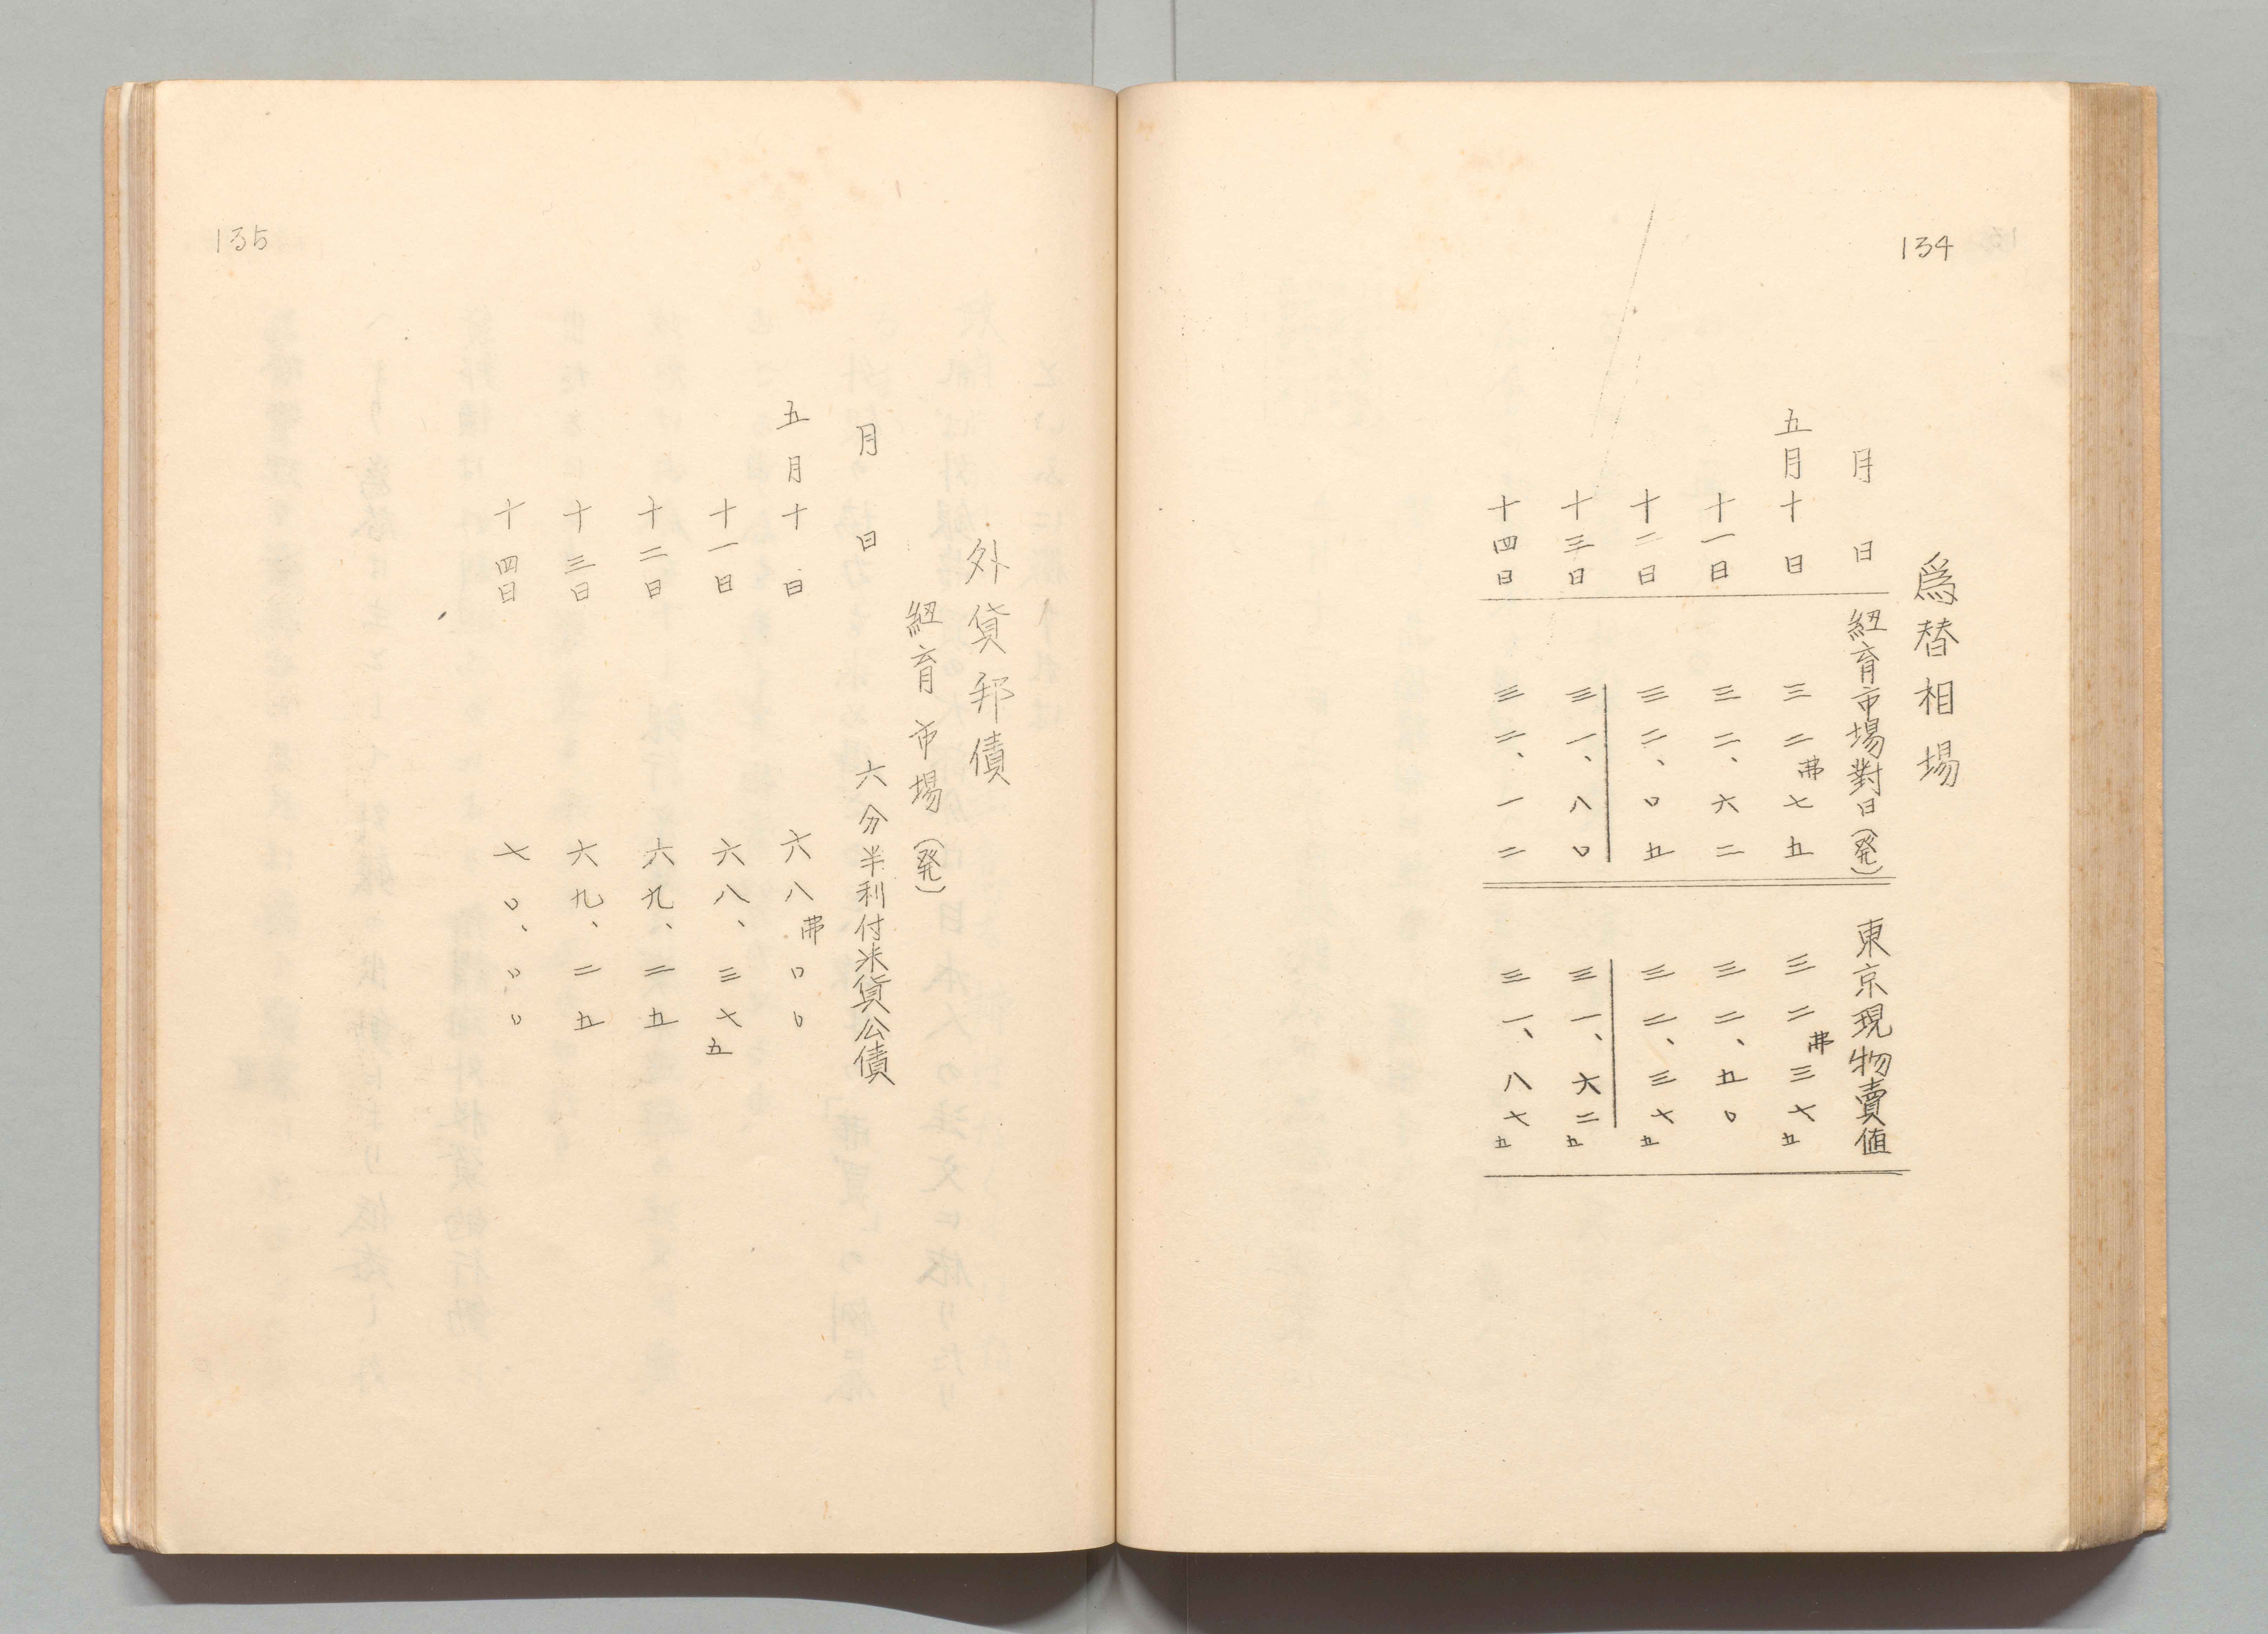 134
爲替相場
月日 紐育市場對日(発) 東京現物賣値
五月十日 三二弗七五 三二弗三七五
十一日 三二、六二 三二、五〇
十二日 三二、〇五 三二、三七五
十三日 三一、八〇 三一、六二五
十四日 三二、一二 三一、八七五
135
外貨邦債
紐育市場(発)
月日 六分半利付米貨公債
五月十日 六八弗〇〇
十一日 六八、三七五
十二日 六九、二五
十三日 六九、二五
十四日 七〇、〇〇